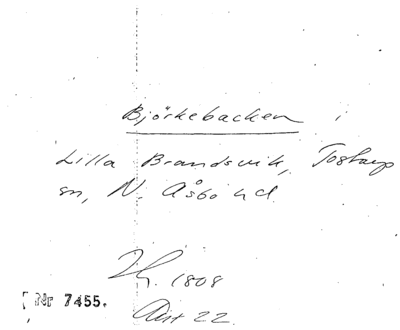 Björkebacken i
Lilla Brandsvik, Tostarp
sn, N. Åsbo hd.
1808
Nr 7455.
Akt 22.